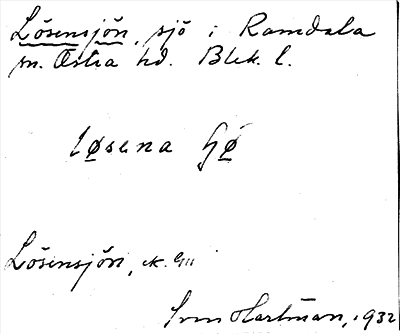 Lösensjön, sjö i Ramdala
sn. Östra hd. Blek. l.
løsena ʃø
Lösensjön, ek.
Sven Hartman, 1932